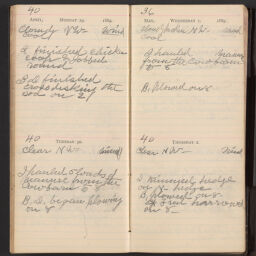 40
APRIL, MONDAY 29. 1889.
Cloudy N.W. Wind
Cool
I finished chicken
coop & jobbed
round
B. S. finished
cross disking the
sod on 2
40
TUESDAY 30.
Clear N.W.
I hauled loads of
manure from the
Cowbarn to 8
B. S. began plowing
on 8
36
MAY, WEDNESDAY 1. 1889.
N.W. Wind
Cool
I hauled manure
from the Cowbarn
to 8
B. Plowed on 8
40
THURSDAY 2.
Clear N.W. Wind
I hedge
on 8
B. plowed on 8
narrowed
on 8